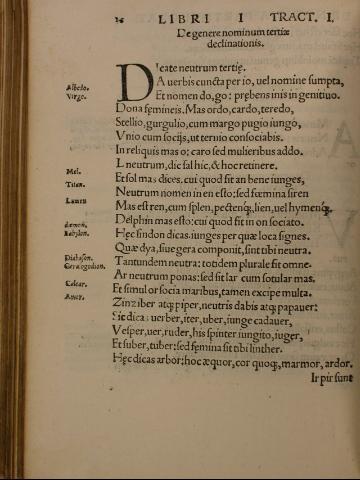 26 LIBRI I TRACT. I.
De genere nominum tertiæ
declinationis.
Dicate neutrum tertię.
Albedo. A uerbis cuncta per io, uel nomine sumpta,
Virgo. Et nomen do, go: prębens inis in genitiuo.
Dona fęmineis. Mas ordo, cardo, teredo,
Stellio, gurgulio, cum margo pugio iungo,
Vnio cum socijs, ut ternio consociabis.
In reliquis mas o; caro sed mulieribus addo.
L neutrum, dic sal hic, & hoc retinere.
Mel. Et sol mas dices, cui quod sit an bene iunges,
Titan. Neutrum nomen in en esto: sed fœmina siren
Mas est ren, cum splen, pectenq;, lien, uel hymenq;.
Dęmon. Delphin mas esto: cui quod fit in on sociato.
Babylon. Hęc sindon dicas. iunges per quæ loca signes.
Quæ dya, siue gera componit, sint tibi neutra.
Diahason. Tantundem neutra: totidem plurale sit omne.
Geracogodion. Ar neutrum ponas: sed sit lar cum sotular mas.
Cæsar. Et simul or socia maribus, tamen excipe multa.
Zinziber atq; piper, neutris dabis atq; papauer:
Sit dica: uerber, iter, uber, iunge cadauer,
Vesper, uer, ruder, his spinter iungito, iuger,
Et suber, tuber: sed fęmina sit tibi linther.
Hęc dicas arbor: hoc æquor, cor quoq;, marmor, ador.
Ir pir sunt